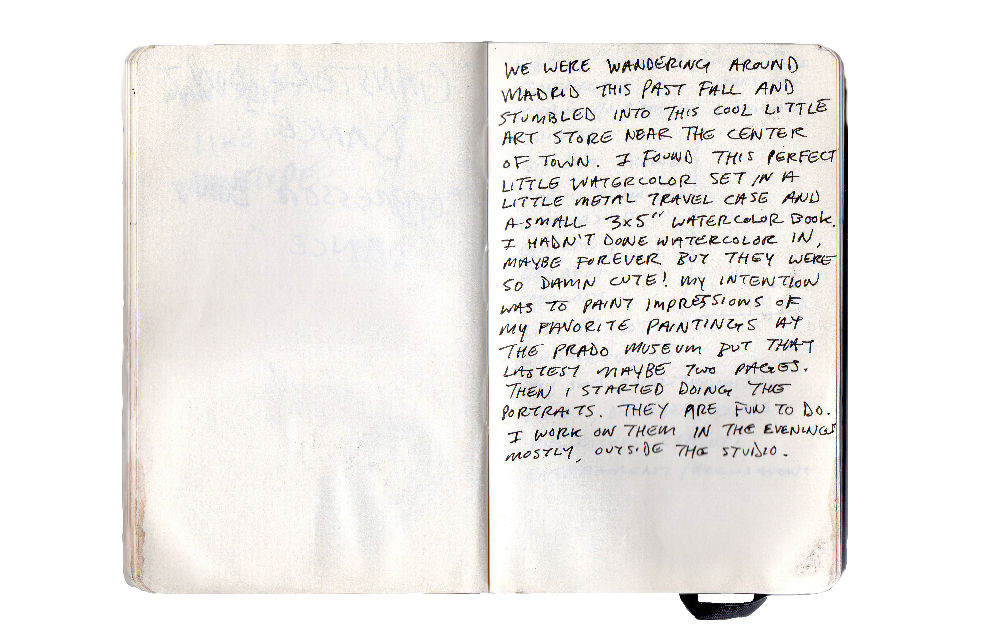 WE WERE WANDERING AROUND
MADRID THIS PAST FALL AND
STUMBLED INTO THIS COOL LITTLE
ART STORE NEAR THE CENTER
OF TOWN. I FOUND THIS PERFECT
LITTLE WATERCOLOR SET IN A
LITTLE METAL TRAVEL CASE AND
A SMALL 3x5" WATERCOLOR BOOK.
I HADN'T DONE WATERCOLOR IN,
MAYBE FOREVER BUT THEY WERE
SO DAMN CUTE! MY INTENTION
WAS TO PAINT IMPRESSIONS OF
MY FAVORITE PAINTINGS AT
THE PRADO MUSEUM BUT THAT
LASTEST MAYBE TWO PAGES.
THEN I STARTED DOING THE
PORTRAITS. THEY ARE FUN TO DO.
I WORK ON THEM IN THE EVENINGS
MOSTLY, OUTSIDE THE STUDIO.